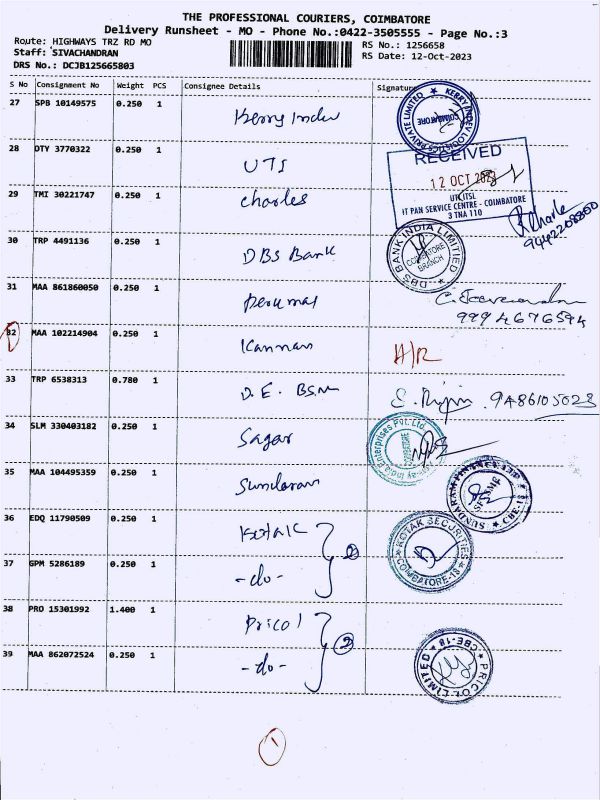 THE PROFESSIONAL COURIERS, COIMBATORE
Delivery Runsheet - MO - Phone No.:0422-3505555 - Page No.:3
Route: HIGHWAYS TRZ RD MO
RS No.: 1256658
Staff: SIVACHANDRAN
RS Date: 12-Oct-2023
DRS No.: DCJB125665803
S No Consignment No Weight PCS Consignee Details Signature
27 SPB 10149575 0.250 1 Kerry Indev
KERRY INDEV LOGISTICS PRIVATE LIMITED COIMBATORE
28 DTY 3770322 0.250 1 UTI
RECEIVED
12 OCT 2023
UTI ITSL
IT PAN SERVICE CENTRE - COIMBATORE
3 TNA 110
29 TMI 30221747 0.250 1 Charles
9442208860
30 TRP 4491136 0.250 1 DBS Bank
DBS BANK INDIA LIMITED COIMBATORE BRANCH
31 MAA 861860050 0.250 1 Perumal
9994676594
32 MAA 102214904 0.250 1 Kannan H/R
33 TRP 6538313 0.780 1 D.E. BSN 9486105023
34 SLM 330403182 0.250 1 Sagar
Enterprises Pvt. Ltd. COIMBATORE
35 MAA 104495359 0.250 1 Sundaram
SUNDARAM FINANCE LTD CBE-18
36 EDQ 11790509 0.250 1 Kotak
2
KOTAK SECURITIES COIMBATORE-18
37 GPM 5286189 0.250 1 -do-
38 PRO 15301992 1.400 1 Pricol
2
39 MAA 862072524 0.250 1 -do-
PRICOL LIMITED CBE-18
1